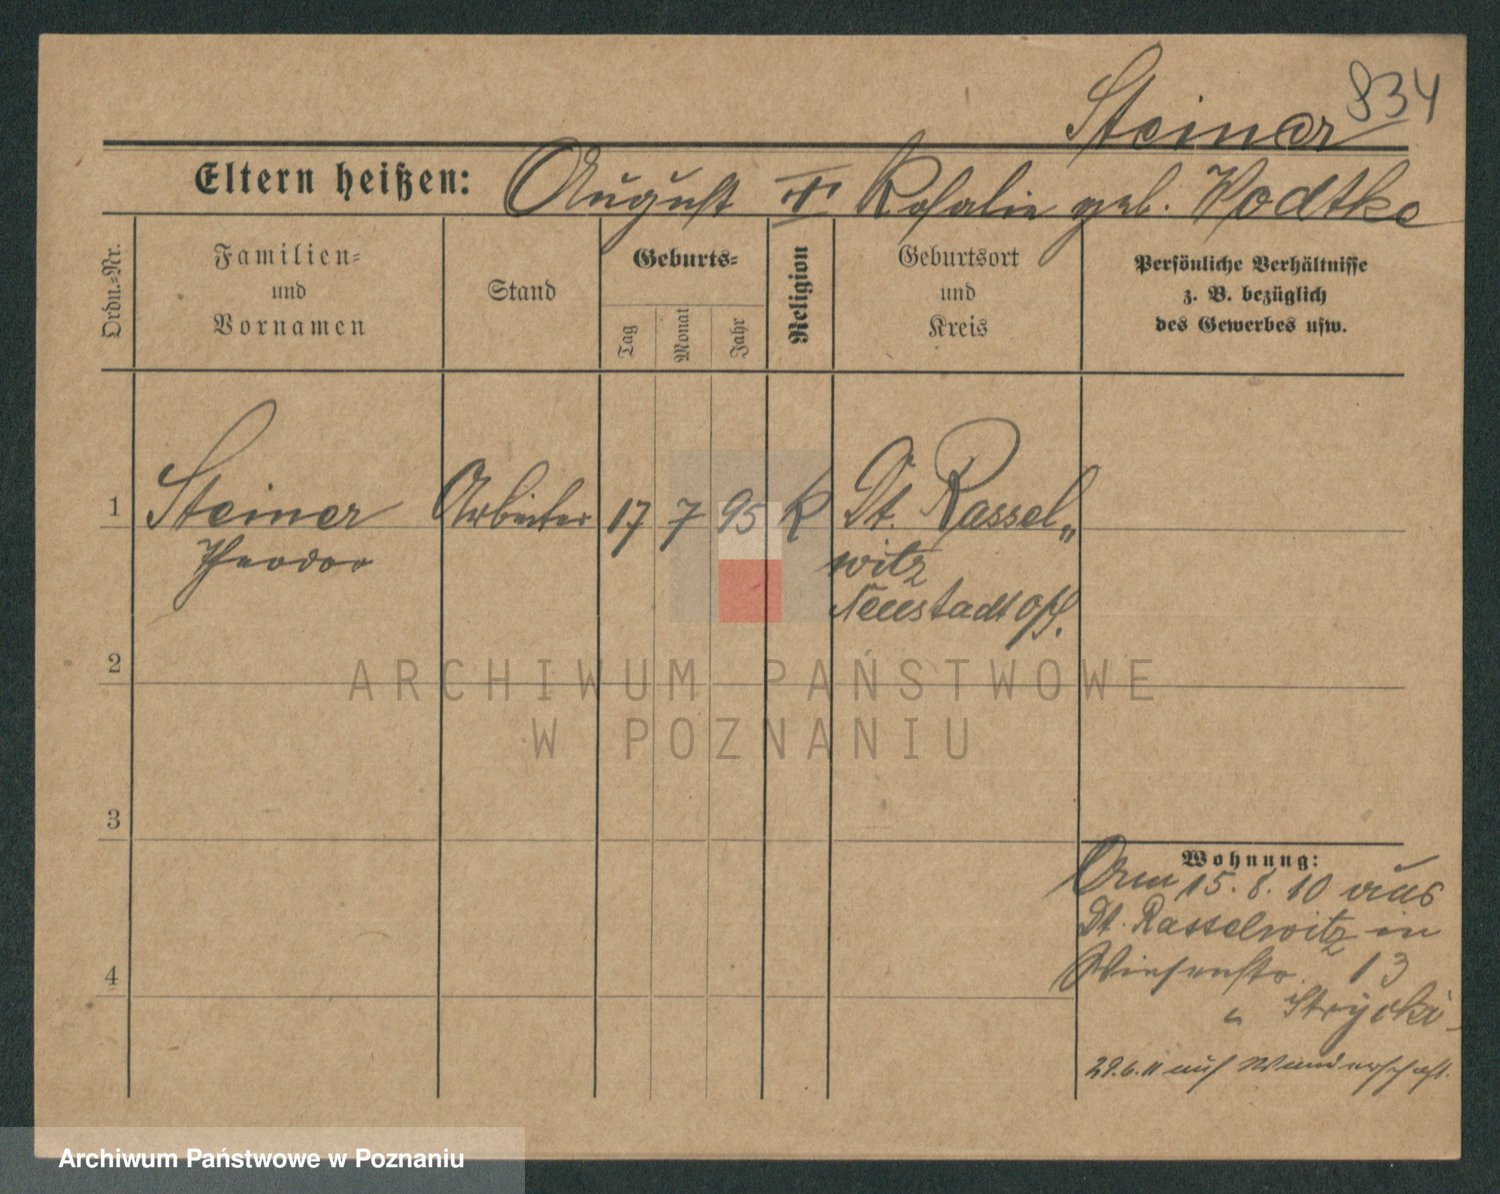 Steiner 834
Eltern heißen: August Rosalie geb. Wodtke
Ordn.-Nr.
Familien-
und
Vornamen
Stand
Geburts-
Tag
Monat
Jahr
Religion
Geburtsort
und
Kreis
Persönliche Verhältnisse
z. B. bezüglich
des Gewerbes usw.
1 Steiner Arbeiter 17 7 95 k Dt. Rassel„
Theodor witz
Neustadt o/S.
2
ARCHIWUM PAŃSTWOWE
W POZNANIU
3
Wohnung:
Am 15. 8. 10 aus
Dt. Rasselwitz in
4 Wiesenstr. 13
Strycki
29.6.11 auf Wanderschaft.
Archiwum Państwowe w Poznaniu